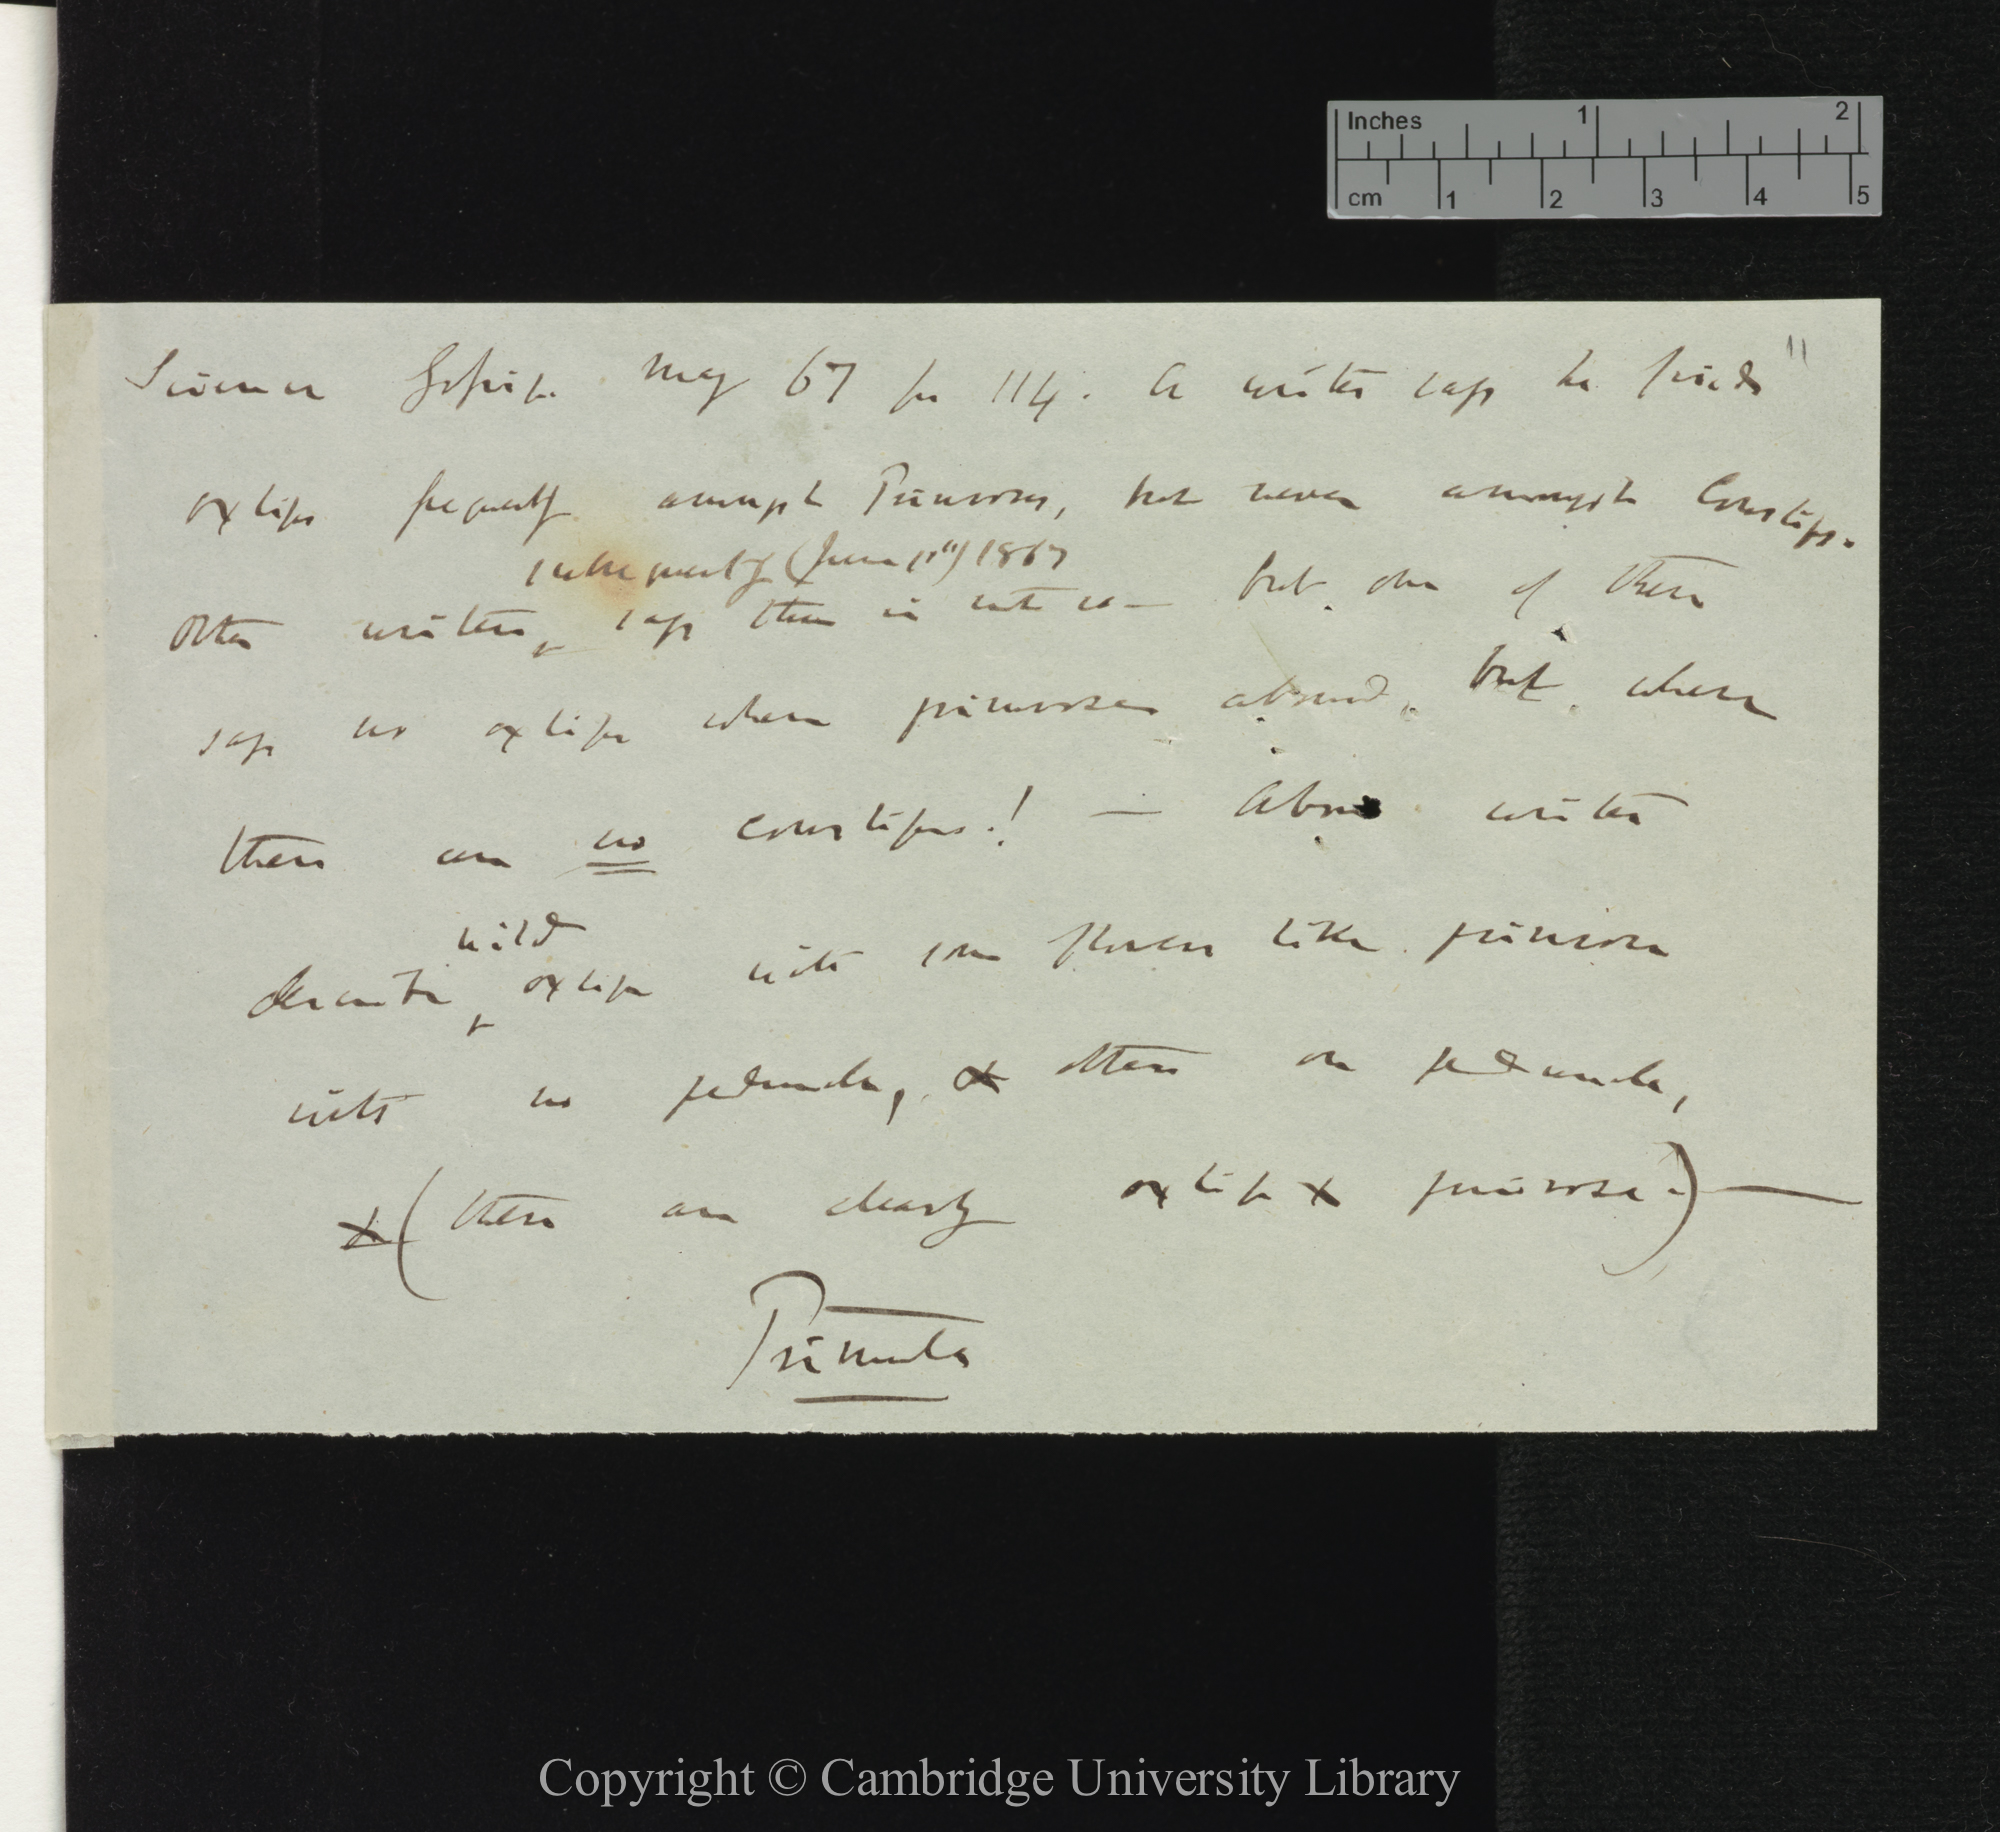 Inches 1 2
cm 1 2 3 4 5
11
Science Gossip. May 67 p 114. A writer says he finds
oxlips frequently amongst Primroses, but never amongst Cowslips.
subsequently (June 1st) 1867
Other writers, says this is not so — but one of these
says no oxlips where primroses abound, but where
there are no cowslips! — Above writer
wild
describes oxlips with some flowers like primrose
with no peduncle, & others on peduncle,
& (these are clearly oxlip x primrose.) —
Primula
Copyright © Cambridge University Library